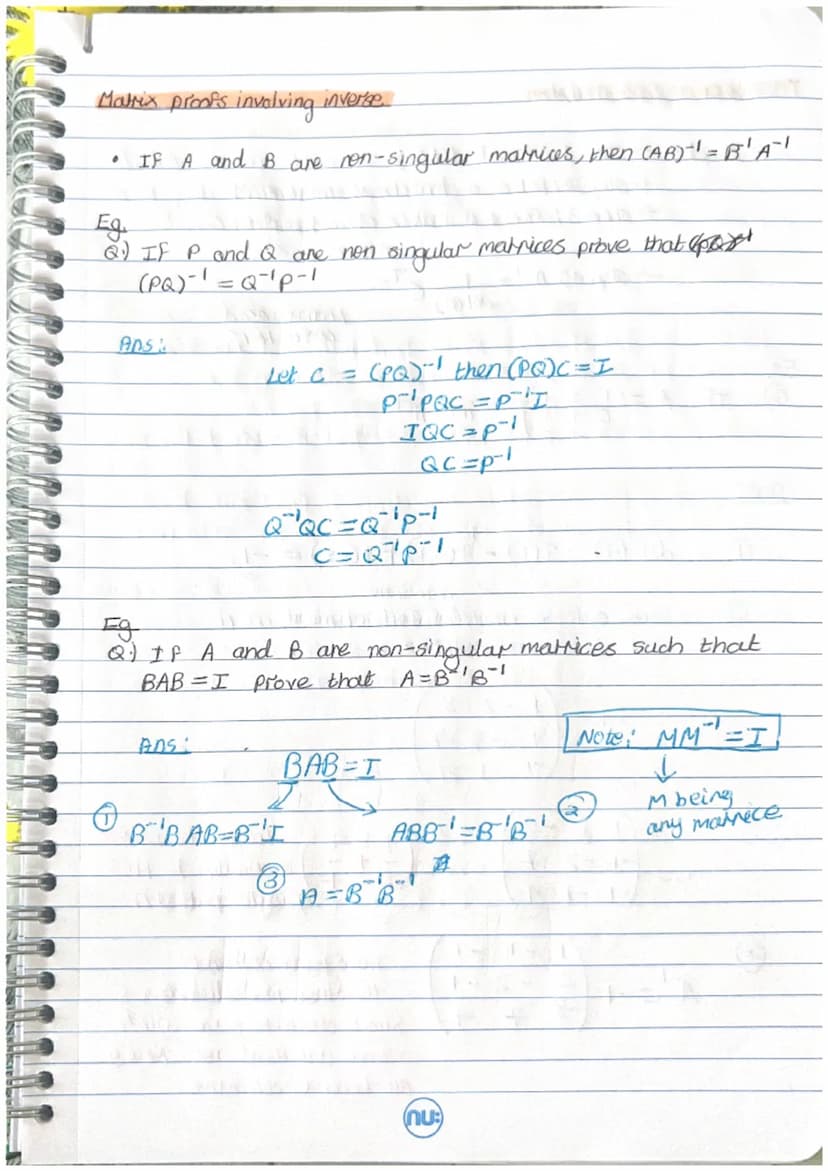 Matrix proofs involving inverse.
• If A and B are non-singular matrices, then (AB)⁻¹ = B⁻¹A⁻¹
Eg.
Q.) If P and Q are non singular matrices prove that
(PQ)⁻¹ = Q⁻¹P⁻¹
Ans:
Let C = (PQ)⁻¹ then (PQ)C = I
P⁻¹PQC = P⁻¹I
IQC = P⁻¹
QC = P⁻¹
Q⁻¹QC = Q⁻¹P⁻¹
C = Q⁻¹P⁻¹
Eg
Q.) If A and B are non-singular matrices such that
BAB = I prove that A = B⁻¹B⁻¹
Ans:
Note: MM⁻¹ = I
BAB = I
M being
any matrice
① B⁻¹BAB = B⁻¹I ABB⁻¹ = B⁻¹B⁻¹ ②
③ A = B⁻¹B⁻¹
nu: